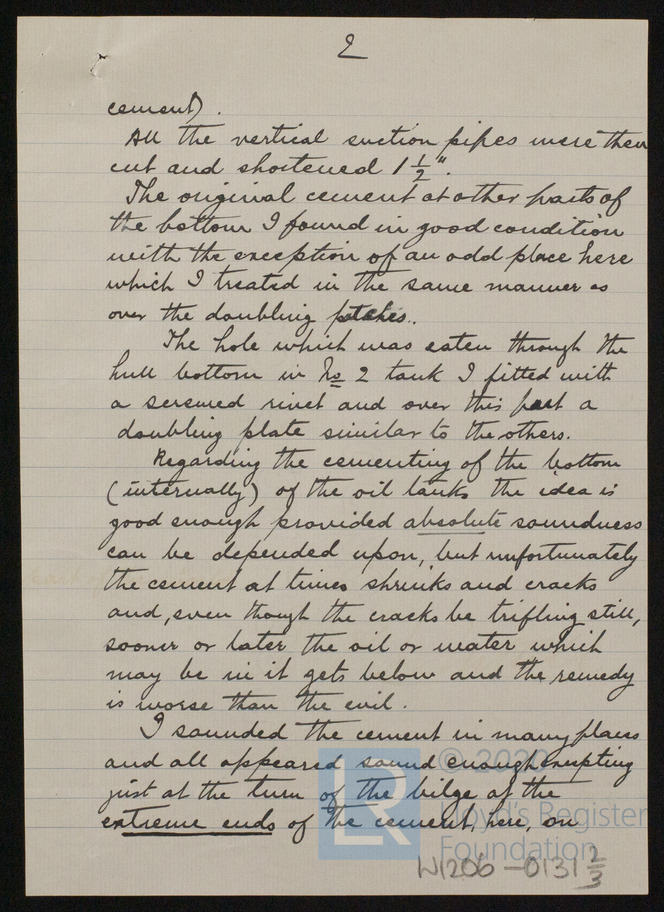 2
cement).
All the vertical suction pipes were then
cut and shortened 1 1/2".
The original cement at other parts of
the bottom I found in good condition
with the exception of an odd place here
which I treated in the same manner as
over the doubling patches.
The hole which was eaten through the
hull bottom in No 2 tank I fitted with
a screwed rivet and over this part a
doubling plate similar to the others.
Regarding the cementing of the bottom
(internally) of the oil tanks the idea is
good enough provided absolute soundness
can be depended upon, but unfortunately
the cement at times shrinks and cracks
and, even though the cracks be trifling still,
sooner or later the oil or water which
may be in it gets below and the remedy
is worse than the evil.
I sounded the cement in many places
and all appeared sound enough excepting
just at the turn of the bilge at the
extreme ends of the cement, here, on
© 2020
Lloyd's Register
Foundation
LR
W1206-0131 2/3